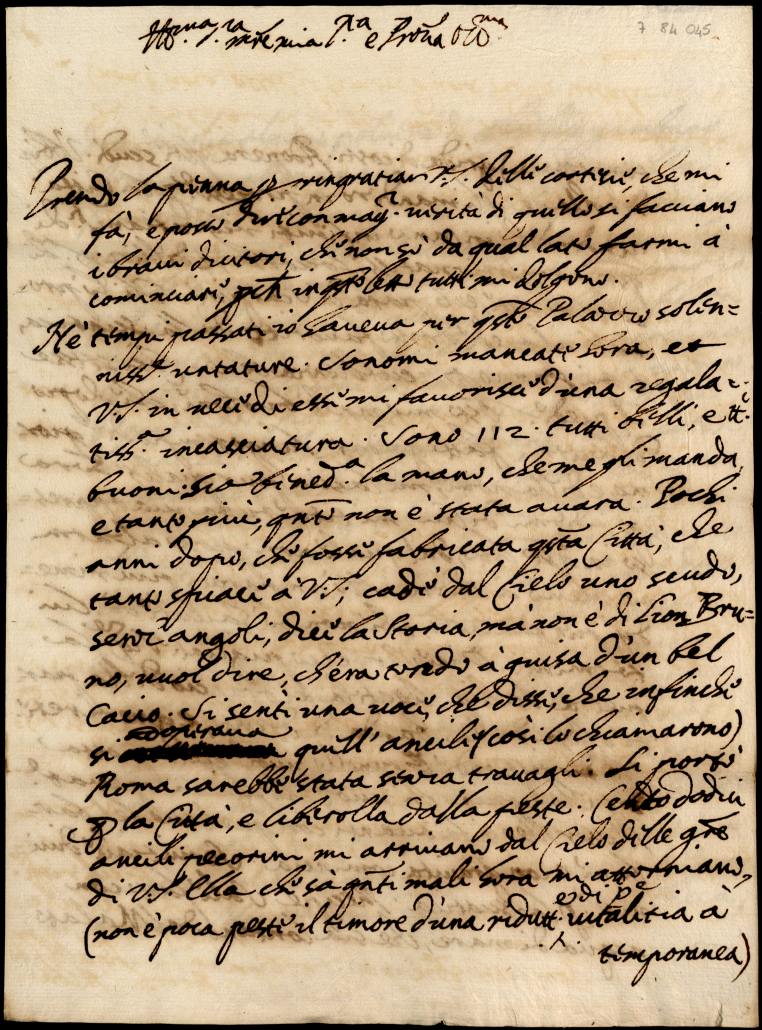 Ill.ma S.ra mia P.na e Pro.na Oss.ma
7 84 045
Prendo la penna p ringratiar V.S. delle cortesie, che mi
fà, e posso dire con mag.r verità di quello si facciano
i bravi dicitori, che non sò da qual lato farmi à
cominciare, pch in qsto letto tutti mi dolgono.
Nè tempi passati io haveva per qsto Palazzo solen=
niss.e untature. Sonomi mancate hora, et
V.S. in vece di esse mi favorisce d'una regala=
tiss.a incasciatura. Sono 112. tutti belli, e tt.i
buoni. Sia bened.a la mano, che me gli manda,
e tanto più, qnto non è stata avara. Pochi
anni dopo, che fosse fabricata qsta Città, che
tanto spiace à V.S., cadè dal Cielo uno scudo,
senz'angoli, dice la Storia, mà non è di Lion Bru=
no, vuol dire, ch'era tondo à guisa d'un bel
Cacio. Si sentì una voce, che disse, che infinche
si adoperava quell'ancile (così lo chiamarono)
Roma sarebbe stata senza travagli. Si portò
p la Città, e liberolla dalla peste. Cento dodici
ancili pecorini mi arrivano dal Cielo delle gre
di V.S. Ella che sà qnti mali hora mi attorniano,
(non è poca peste il timore d'una ridutt.e di pe vitalitia à
temporanea)